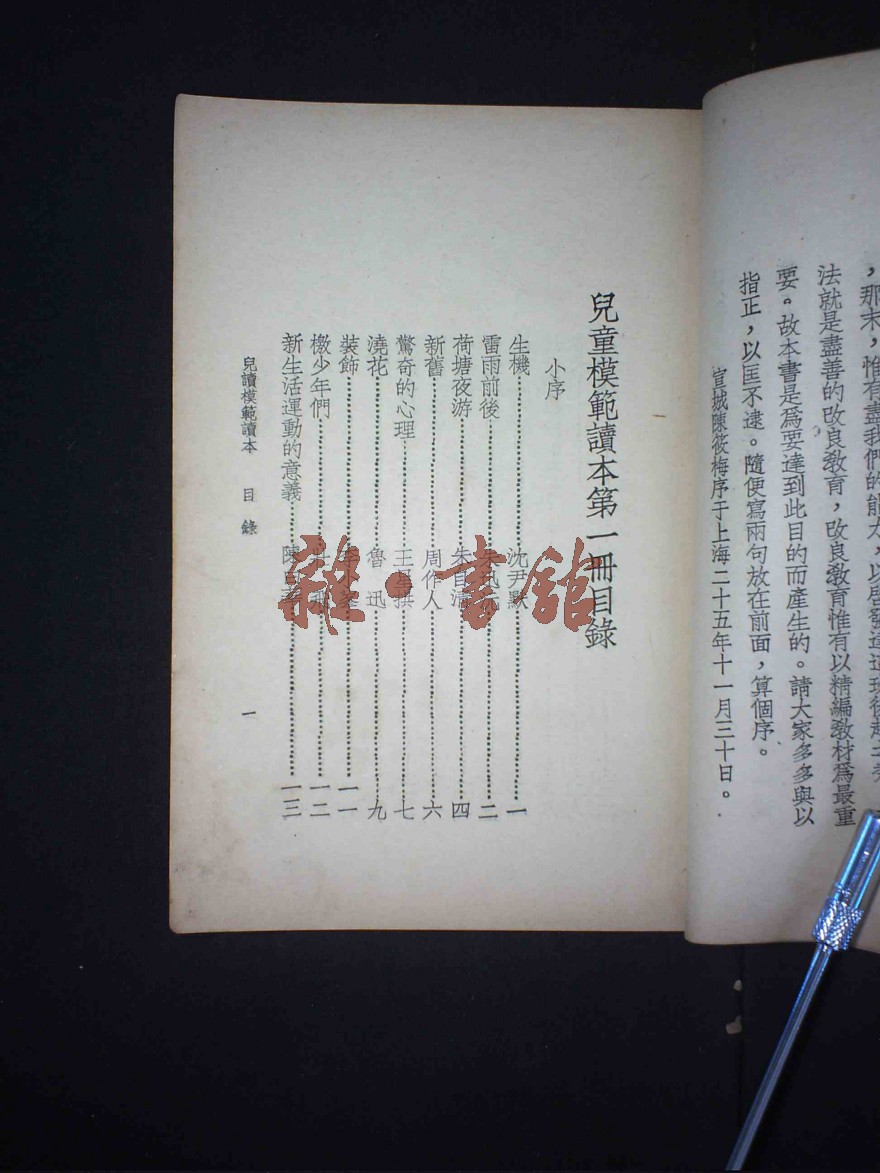 ，那末，惟有盡我們的能力，以啓發達
法就是盡善的改良敎育，改良敎育惟有以精編敎材爲最重
要。故本書是爲要達到此目的而產生的。請大家多多與以
指正，以匡不逮。隨便寫兩句放在前面，算個序。
宣城陳筱梅序于上海二十五年十一月三十日。
兒童模範讀本第一冊目錄
小序
生機 沈尹默 一
雷雨前後 二
荷塘夜游 朱自清 四
新舊 周作人 六
驚奇的心理 王星撰 七
澆花 魯迅 九
裝飾 一一
檄少年們 一二
新生活運動的意義 陳 一三
兒讀模範讀本 目錄
一
雜·書館